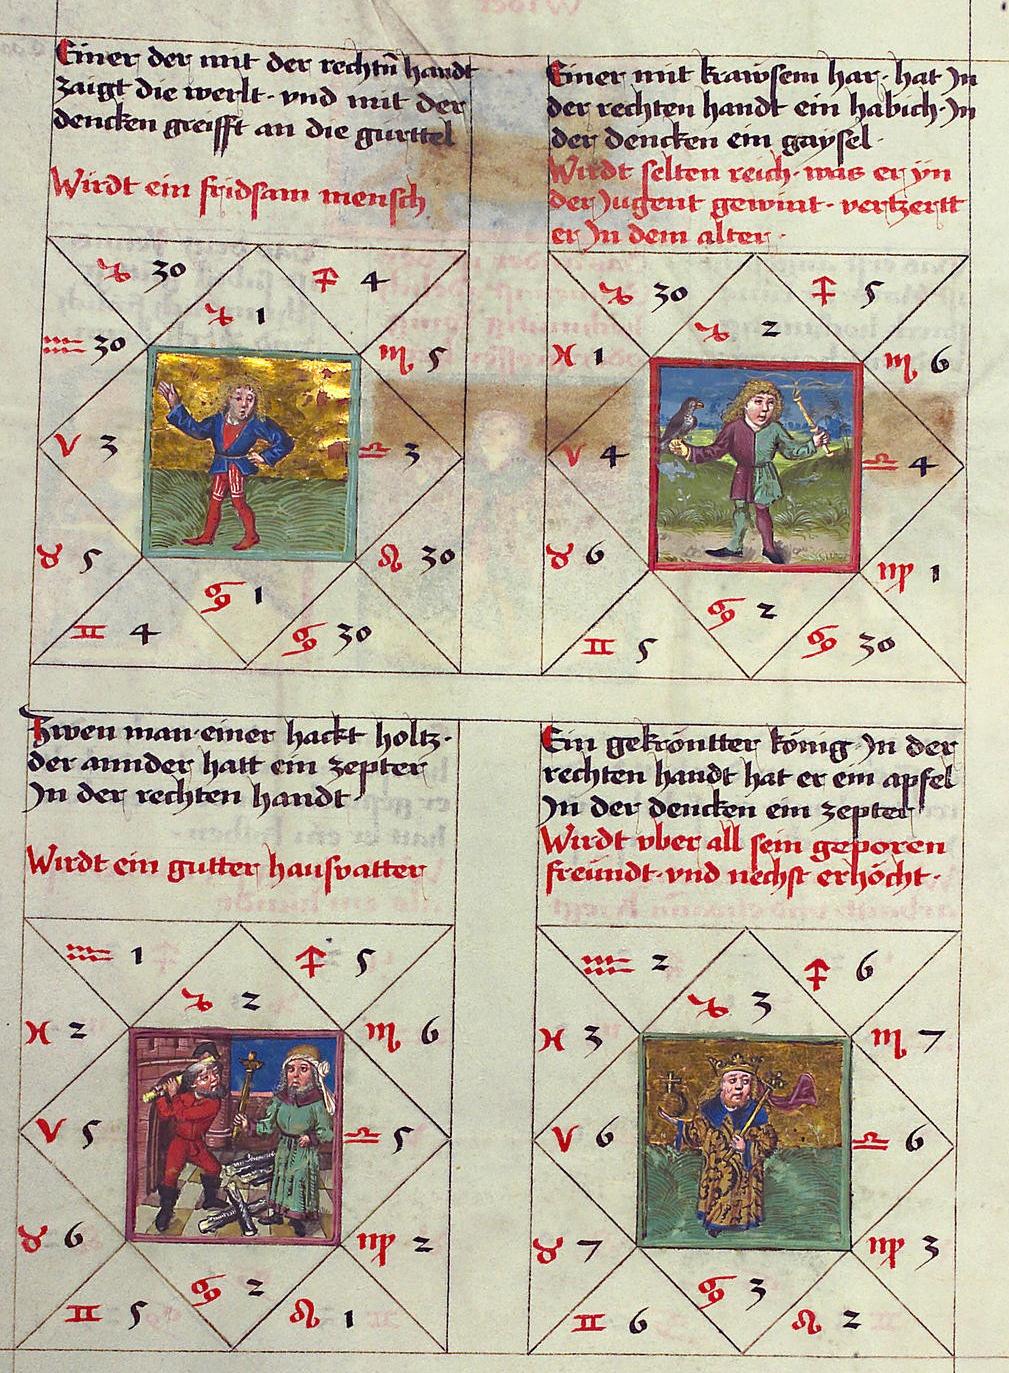 Einer der mit der rechtn̄ handt
zaigt die werlt · vnd mit der
dencken greifft an die gurttel
Wirdt ein fridsam mensch
♑ 30
♐ 4
♑ 1
♒ 30
♏ 5
♈ 3
♎ 3
♉ 5
♌ 30
♋ 1
♊ 4
♋ 30
Einer mit krawsem har · hat Jn
der rechten handt ein habich · Jn
der dencken ein gaysel ·
Wirdt selten reich · was er yn
der Jugent gewint · vertzertt
er Jn dem alter ·
♑ 30
♐ 5
♑ 2
♓ 1
♏ 6
♈ 4
♎ 4
♉ 6
♍ 1
♋ 2
♊ 5
♋ 30
Zwen man · einer hackt holtz ·
der annder hatt ein zepter
Jn der rechten handt ·
Wirdt ein gutter hausvatter
♒ 1
♐ 5
♑ 2
♓ 2
♏ 6
♈ 5
♎ 5
♉ 6
♍ 2
♋ 2
♊ 5
♌ 1
Ein gekröntter könig · Jn der
rechten handt hat er ein apfel
Jn der dencken ein zepter
Wirdt vber all sein geporen
freündt · vnd nechst erhöcht ·
♒ 2
♐ 6
♑ 3
♓ 3
♏ 7
♈ 6
♎ 6
♉ 7
♍ 3
♋ 3
♊ 6
♌ 2